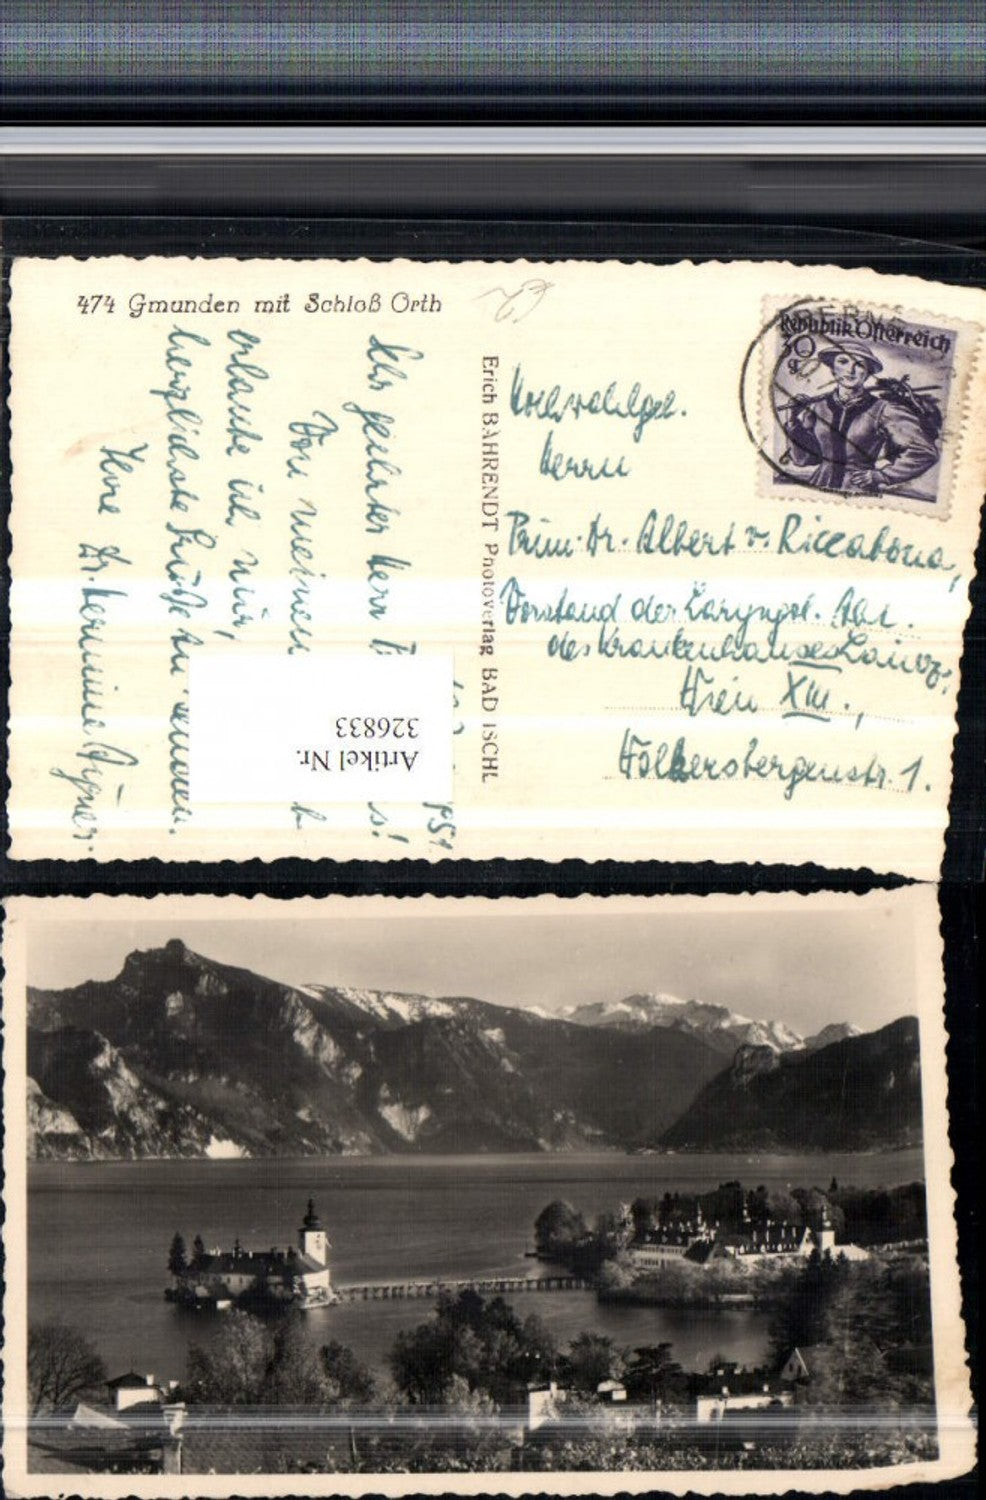 474 Gmunden mit Schloß Orth
Republik Österreich
30
g
Erich BÄHRENDT Photoverlag BAD ISCHL
Hochwohlgeb.
Herrn
Prim. Dr. Albert v. Riccabona,
Vorstand der Laryngol. Abt.
des Krankenhauses Lainz,
Wien XIII.,
Wolkersbergenstr. 1.
Sehr geehrter Herr
Von meinem
erlaube ich mir,
herzlichste Grüße zu senden.
Ihre Dr. Hermine
Artikel Nr.
326833